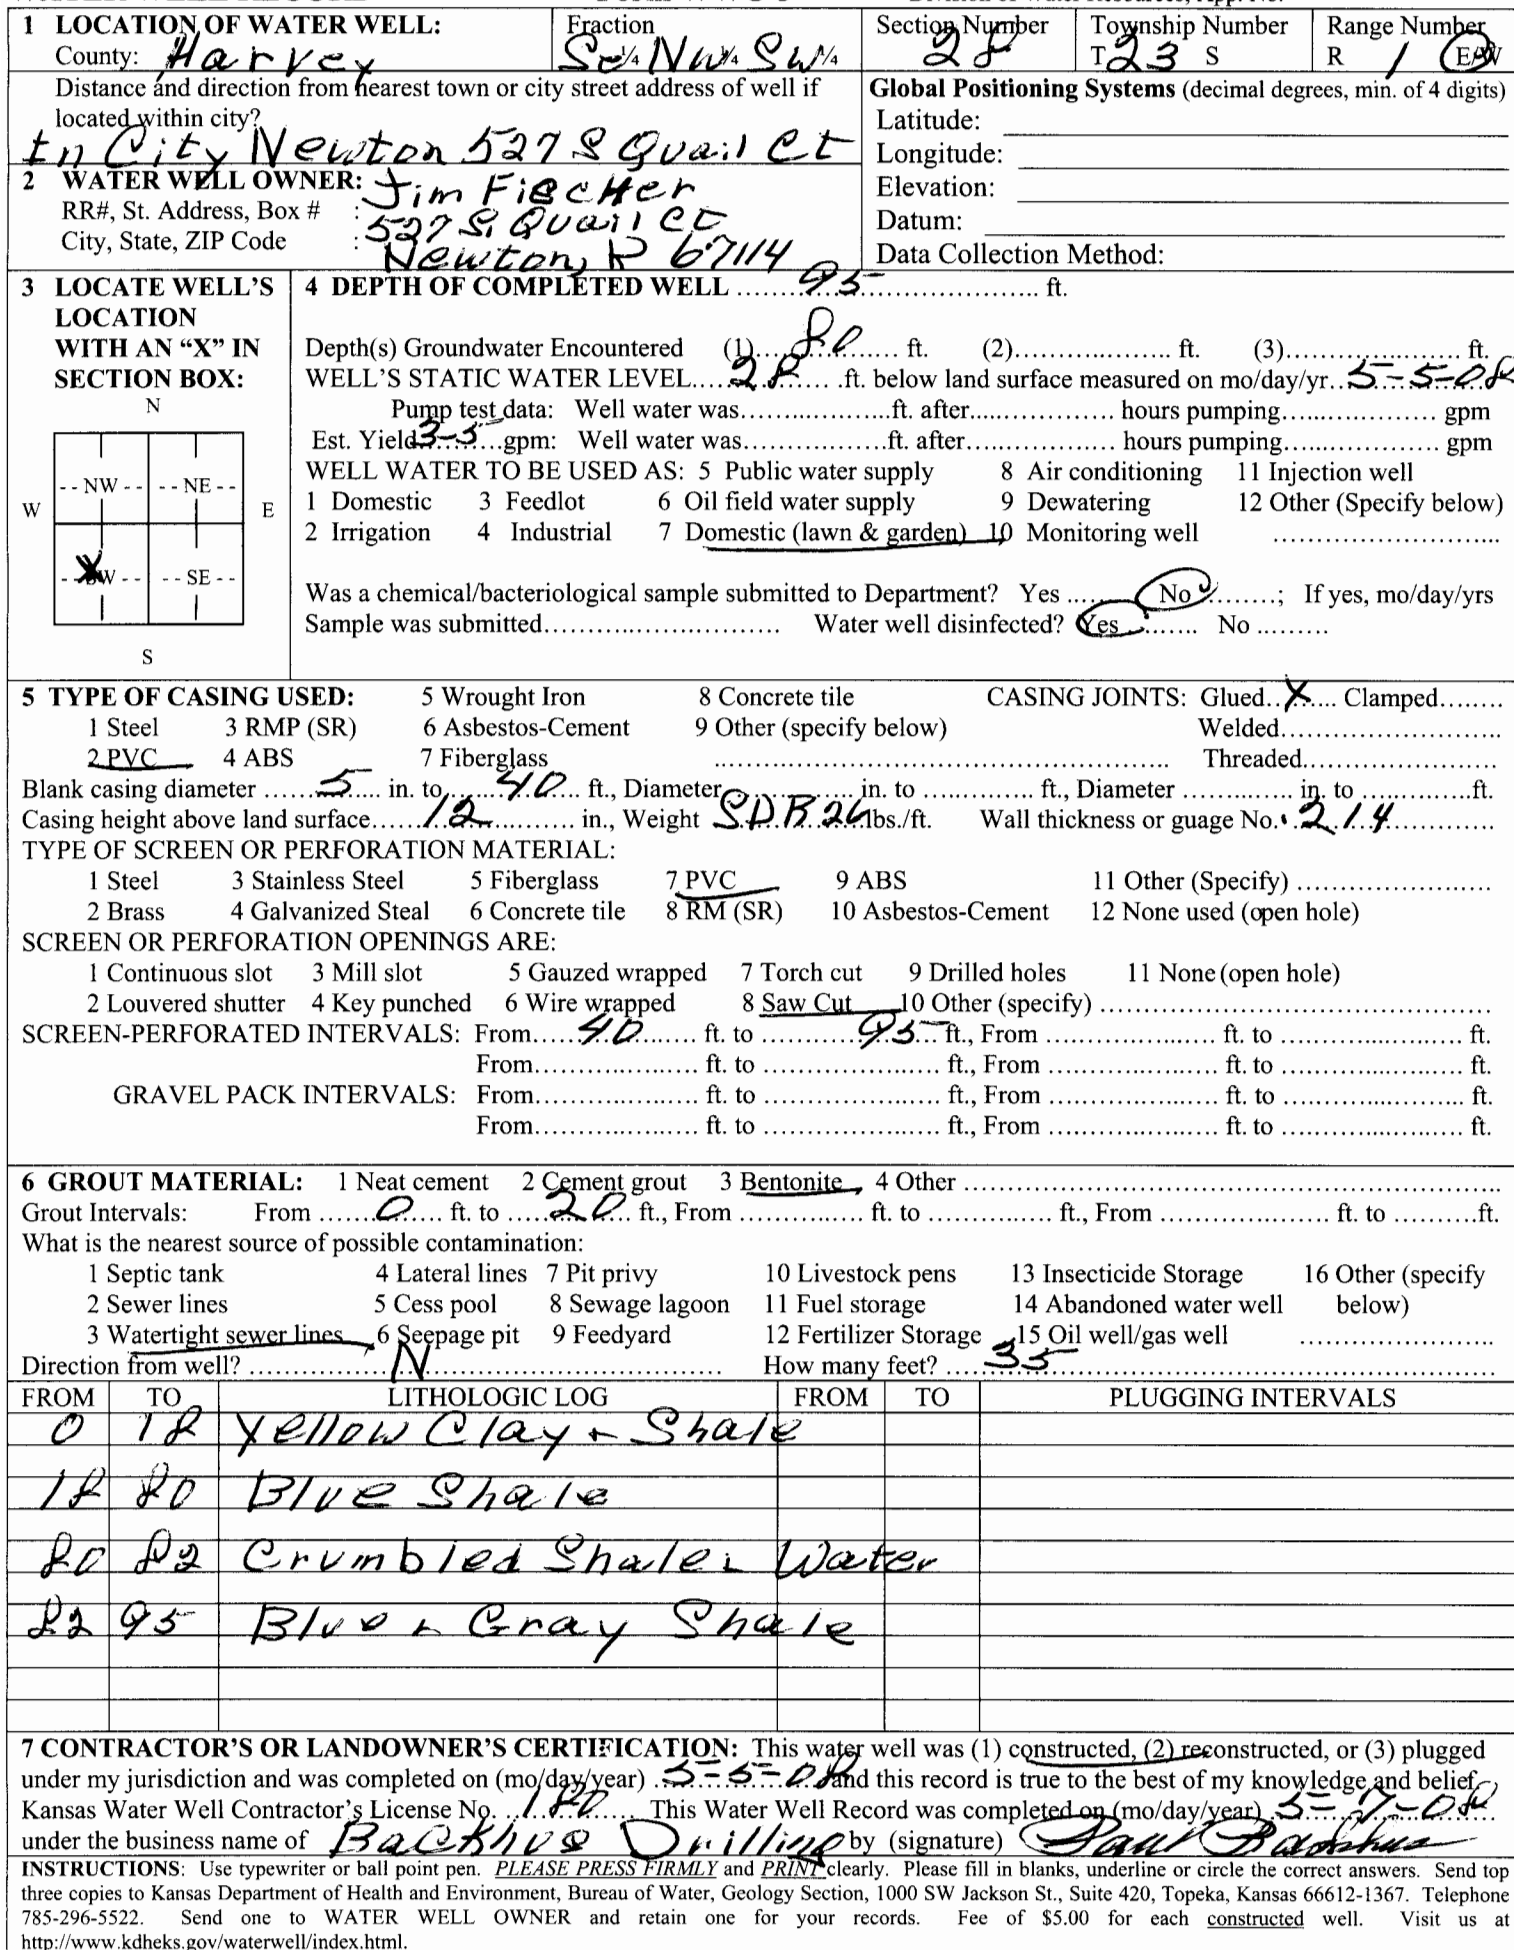 1 LOCATION OF WATER WELL: Fraction Section Number Township Number Range Number
County: Harvey Se ¼ Nw ¼ Sw ¼ 28 T 23 S R 1 E/W
Distance and direction from nearest town or city street address of well if
located within city?
In City Newton 527 S Quail Ct
Global Positioning Systems (decimal degrees, min. of 4 digits)
Latitude:
Longitude:
Elevation:
Datum:
Data Collection Method:
2 WATER WELL OWNER: Jim Fischer
RR#, St. Address, Box # : 527 S. Quail Ct
City, State, ZIP Code : Newton, K 67114
3 LOCATE WELL'S
LOCATION
WITH AN "X" IN
SECTION BOX:
N
NW NE
W E
X SW SE
S
4 DEPTH OF COMPLETED WELL 95 ft.
Depth(s) Groundwater Encountered (1) 80 ft. (2) ft. (3) ft.
WELL'S STATIC WATER LEVEL 28 ft. below land surface measured on mo/day/yr 5-5-08
Pump test data: Well water was ft. after hours pumping gpm
Est. Yield 3-5 gpm: Well water was ft. after hours pumping gpm
WELL WATER TO BE USED AS: 5 Public water supply 8 Air conditioning 11 Injection well
1 Domestic 3 Feedlot 6 Oil field water supply 9 Dewatering 12 Other (Specify below)
2 Irrigation 4 Industrial 7 Domestic (lawn & garden) 10 Monitoring well
Was a chemical/bacteriological sample submitted to Department? Yes No ; If yes, mo/day/yrs
Sample was submitted Water well disinfected? Yes No
5 TYPE OF CASING USED: 5 Wrought Iron 8 Concrete tile CASING JOINTS: Glued X Clamped
1 Steel 3 RMP (SR) 6 Asbestos-Cement 9 Other (specify below) Welded
2 PVC 4 ABS 7 Fiberglass Threaded
Blank casing diameter 5 in. to 40 ft., Diameter in. to ft., Diameter in. to ft.
Casing height above land surface 12 in., Weight SDR 26 lbs./ft. Wall thickness or guage No. .214
TYPE OF SCREEN OR PERFORATION MATERIAL:
1 Steel 3 Stainless Steel 5 Fiberglass 7 PVC 9 ABS 11 Other (Specify)
2 Brass 4 Galvanized Steal 6 Concrete tile 8 RM (SR) 10 Asbestos-Cement 12 None used (open hole)
SCREEN OR PERFORATION OPENINGS ARE:
1 Continuous slot 3 Mill slot 5 Gauzed wrapped 7 Torch cut 9 Drilled holes 11 None (open hole)
2 Louvered shutter 4 Key punched 6 Wire wrapped 8 Saw Cut 10 Other (specify)
SCREEN-PERFORATED INTERVALS: From 40 ft. to 95 ft., From ft. to ft.
From ft. to ft., From ft. to ft.
GRAVEL PACK INTERVALS: From ft. to ft., From ft. to ft.
From ft. to ft., From ft. to ft.
6 GROUT MATERIAL: 1 Neat cement 2 Cement grout 3 Bentonite 4 Other
Grout Intervals: From 0 ft. to 20 ft., From ft. to ft., From ft. to ft.
What is the nearest source of possible contamination:
1 Septic tank 4 Lateral lines 7 Pit privy 10 Livestock pens 13 Insecticide Storage 16 Other (specify
2 Sewer lines 5 Cess pool 8 Sewage lagoon 11 Fuel storage 14 Abandoned water well below)
3 Watertight sewer lines 6 Seepage pit 9 Feedyard 12 Fertilizer Storage 15 Oil well/gas well
Direction from well? N How many feet? 35
FROM TO LITHOLOGIC LOG FROM TO PLUGGING INTERVALS
0 18 Yellow Clay + Shale
18 80 Blue Shale
80 82 Crumbled Shale + Water
82 95 Blue + Gray Shale
7 CONTRACTOR'S OR LANDOWNER'S CERTIFICATION: This water well was (1) constructed, (2) reconstructed, or (3) plugged
under my jurisdiction and was completed on (mo/day/year) 5-5-08 and this record is true to the best of my knowledge and belief.
Kansas Water Well Contractor's License No. 180 This Water Well Record was completed on (mo/day/year) 5-7-08
under the business name of Backhus Drilling by (signature) Paul Backhus
INSTRUCTIONS: Use typewriter or ball point pen. PLEASE PRESS FIRMLY and PRINT clearly. Please fill in blanks, underline or circle the correct answers. Send top
three copies to Kansas Department of Health and Environment, Bureau of Water, Geology Section, 1000 SW Jackson St., Suite 420, Topeka, Kansas 66612-1367. Telephone
785-296-5522. Send one to WATER WELL OWNER and retain one for your records. Fee of $5.00 for each constructed well. Visit us at
http://www.kdheks.gov/waterwell/index.html.